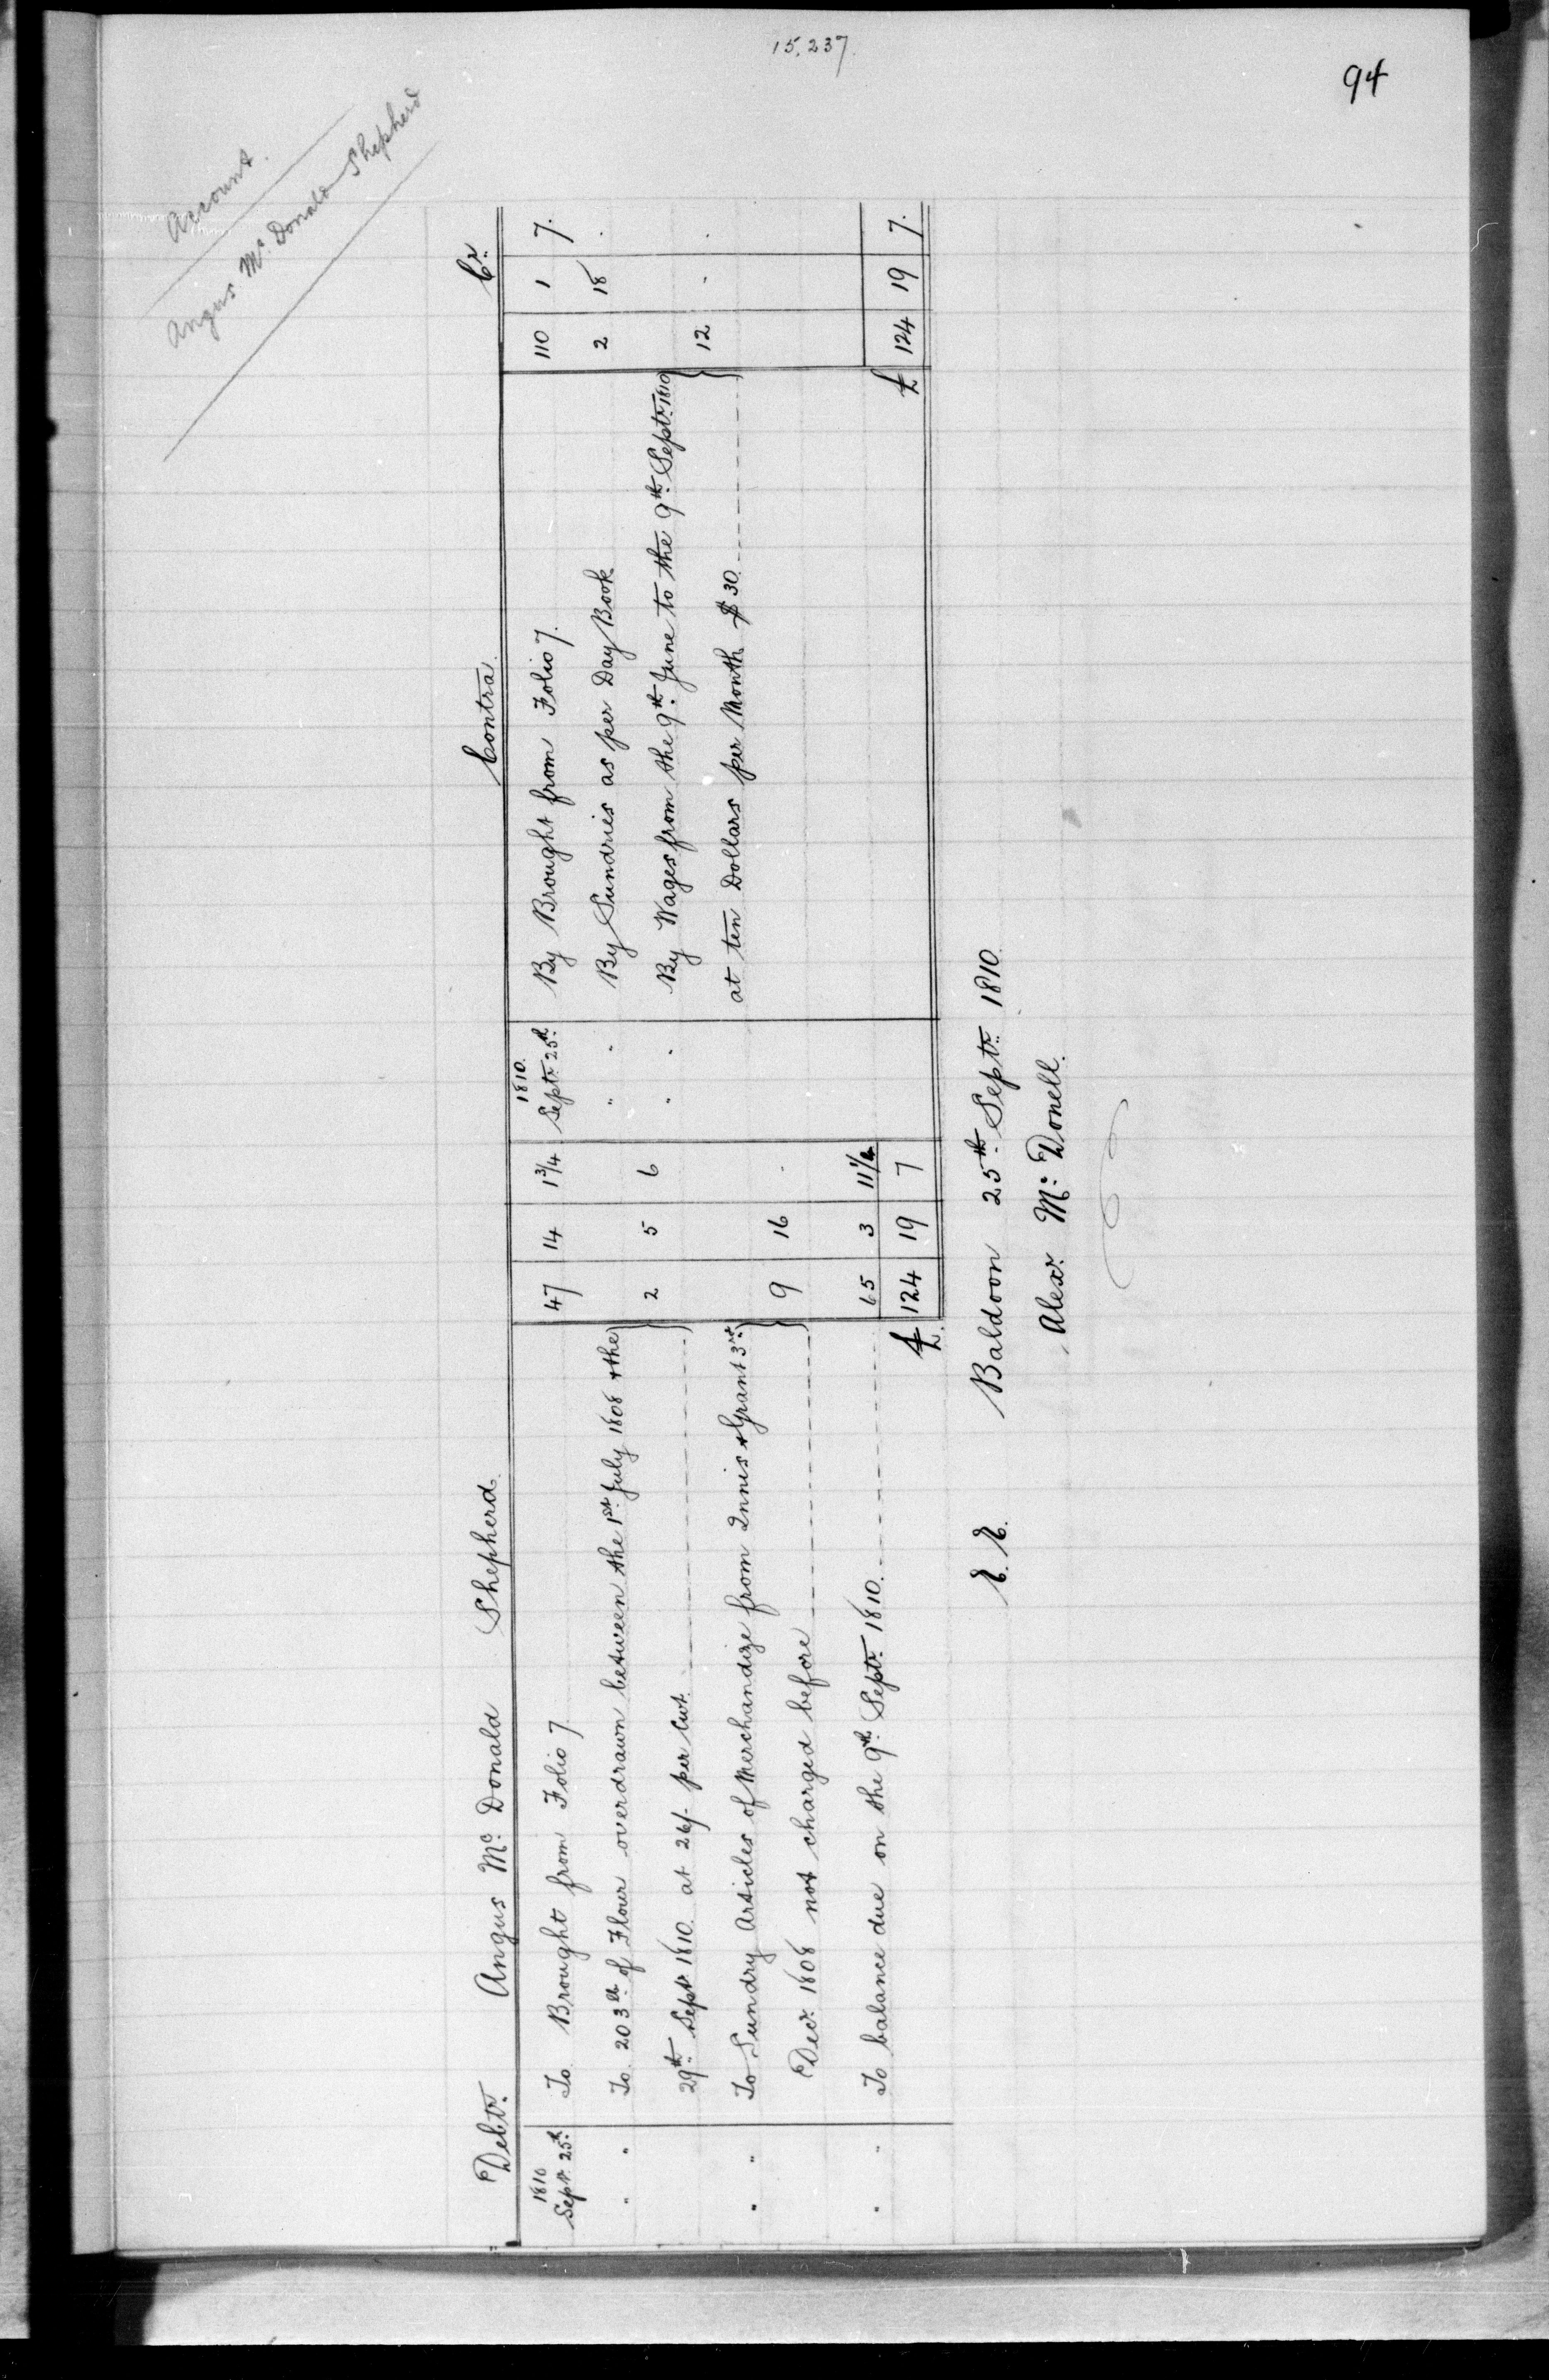 15,237.
94
Account.
Angus Mc. Donald Shepherd
Debtr. Angus Mc. Donald Shepherd.
1810
Sept. 25th. To Brought from Folio 7 47 14 1 3/4
" " To 203 lb. of Flour overdrawn between the 1st. July 1808 & the
29th. Sept. 1810. at 26/- per Cwt. 2 5 6
" " To Sundry Articles of Merchandize from Innis & Grant 3rd.
Decr. 1808 not charged before 9 16 .
" " To balance due on the 9th. Septr. 1810. 65 3 11 1/4
£ 124 19 7
Contra. Cr.
1810.
Septr. 25th. By Brought from Folio 7. 110 1 7.
" " By Sundries as per Day Book 2 18 .
" " By Wages from the 9th. June to the 9th. Septr. 1810
at ten Dollars per Month $30. 12 . .
£ 124 19 7.
E. E. Baldoon 25th. Septr. 1810.
Alexr. Mc. Donell.